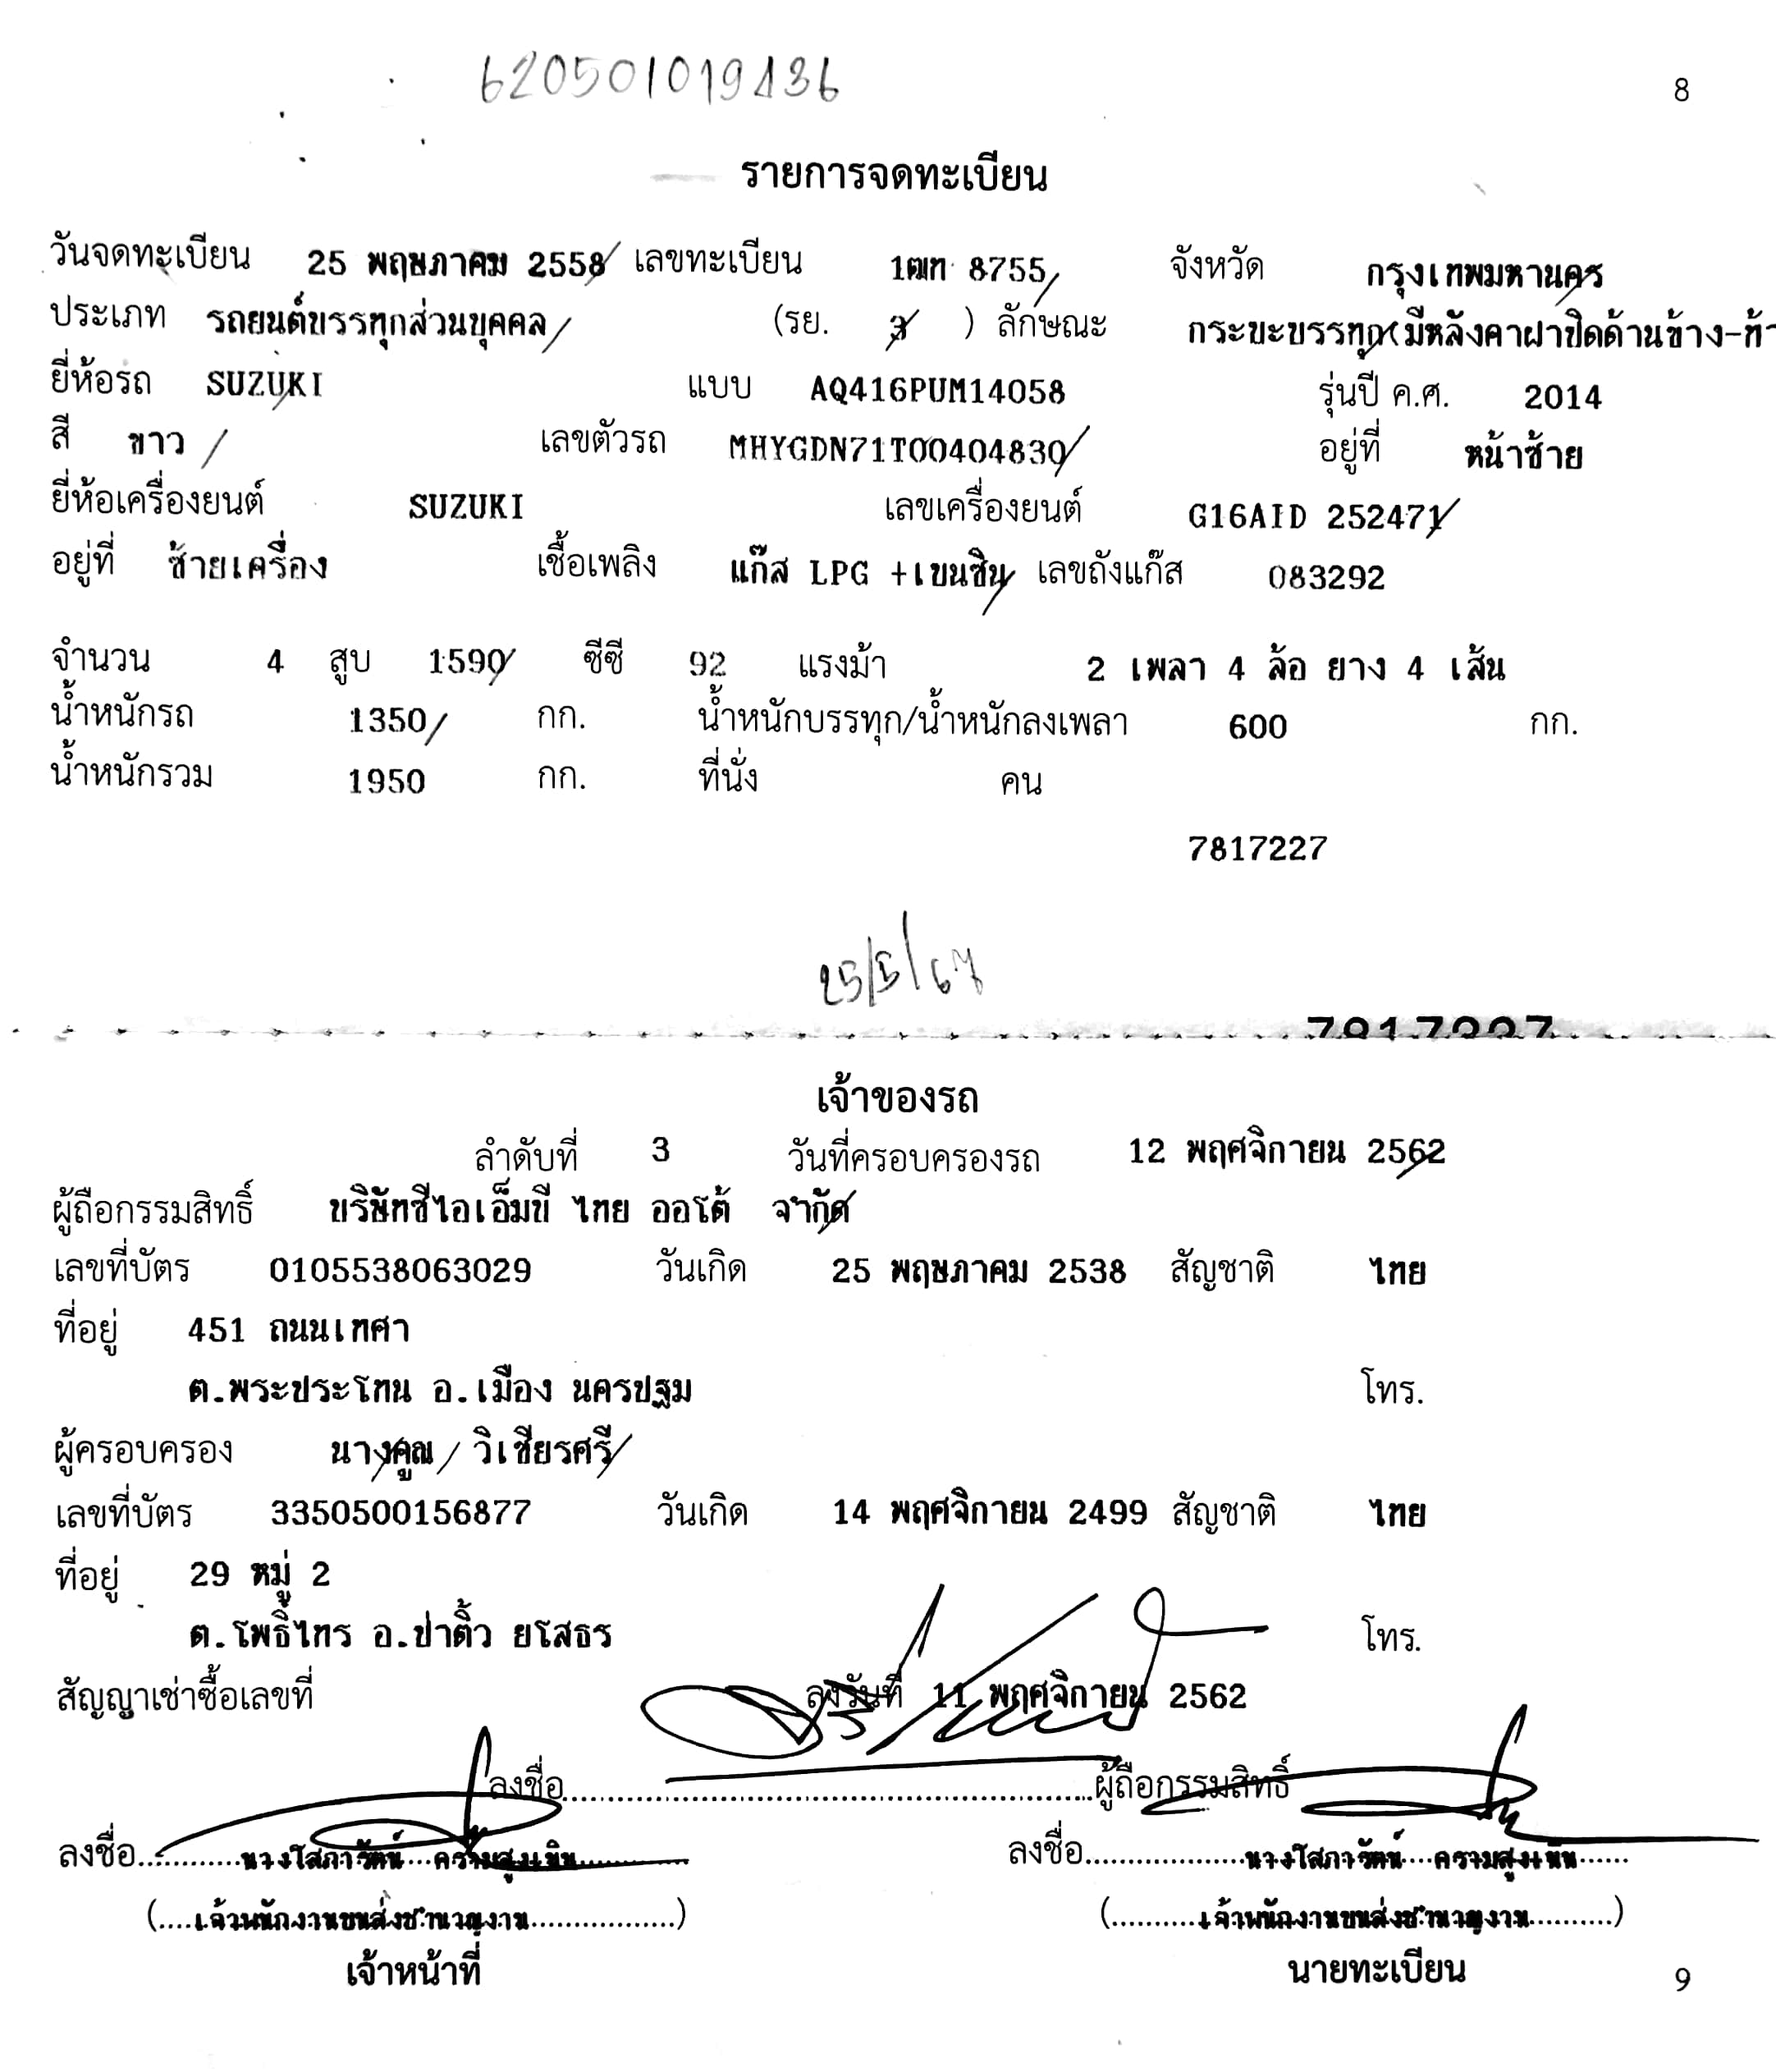 620501019136
8
รายการจดทะเบียน
วันจดทะเบียน 25 พฤษภาคม 2558 เลขทะเบียน 1ฒท 8755 จังหวัด กรุงเทพมหานคร
ประเภท รถยนต์บรรทุกส่วนบุคคล (รย. 3 ) ลักษณะ กระบะบรรทุก(มีหลังคาฝาปิดด้านข้าง-ท้า
ยี่ห้อรถ SUZUKI แบบ AQ416PUM14058 รุ่นปี ค.ศ. 2014
สี ขาว เลขตัวรถ MHYGDN71T00404830 อยู่ที่ หน้าซ้าย
ยี่ห้อเครื่องยนต์ SUZUKI เลขเครื่องยนต์ G16AID 252471
อยู่ที่ ซ้ายเครื่อง เชื้อเพลิง แก๊ส LPG +เบนซิน เลขถังแก๊ส 083292
จำนวน 4 สูบ 1590 ซีซี 92 แรงม้า 2 เพลา 4 ล้อ ยาง 4 เส้น
น้ำหนักรถ 1350 กก. น้ำหนักบรรทุก/น้ำหนักลงเพลา 600 กก.
น้ำหนักรวม 1950 กก. ที่นั่ง คน
7817227
25/5/67
7817227
เจ้าของรถ
ลำดับที่ 3 วันที่ครอบครองรถ 12 พฤศจิกายน 2562
ผู้ถือกรรมสิทธิ์ บริษัทซีไอเอ็มบี ไทย ออโต้ จำกัด
เลขที่บัตร 0105538063029 วันเกิด 25 พฤษภาคม 2538 สัญชาติ ไทย
ที่อยู่ 451 ถนนเทศา
ต.พระประโทน อ.เมือง นครปฐม โทร.
ผู้ครอบครอง นางคูณ วิเชียรศรี
เลขที่บัตร 3350500156877 วันเกิด 14 พฤศจิกายน 2499 สัญชาติ ไทย
ที่อยู่ 29 หมู่ 2
ต.โพธิ์ไทร อ.ป่าติ้ว ยโสธร โทร.
สัญญาเช่าซื้อเลขที่ ลงวันที่ 11 พฤศจิกายน 2562
ลงชื่อ ผู้ถือกรรมสิทธิ์
ลงชื่อ นางโสภารัตน์ ความสูงเนิน ลงชื่อ นางโสภารัตน์ ความสูงเนิน
(เจ้าพนักงานขนส่งชำนาญงาน) (เจ้าพนักงานขนส่งชำนาญงาน)
เจ้าหน้าที่ นายทะเบียน 9